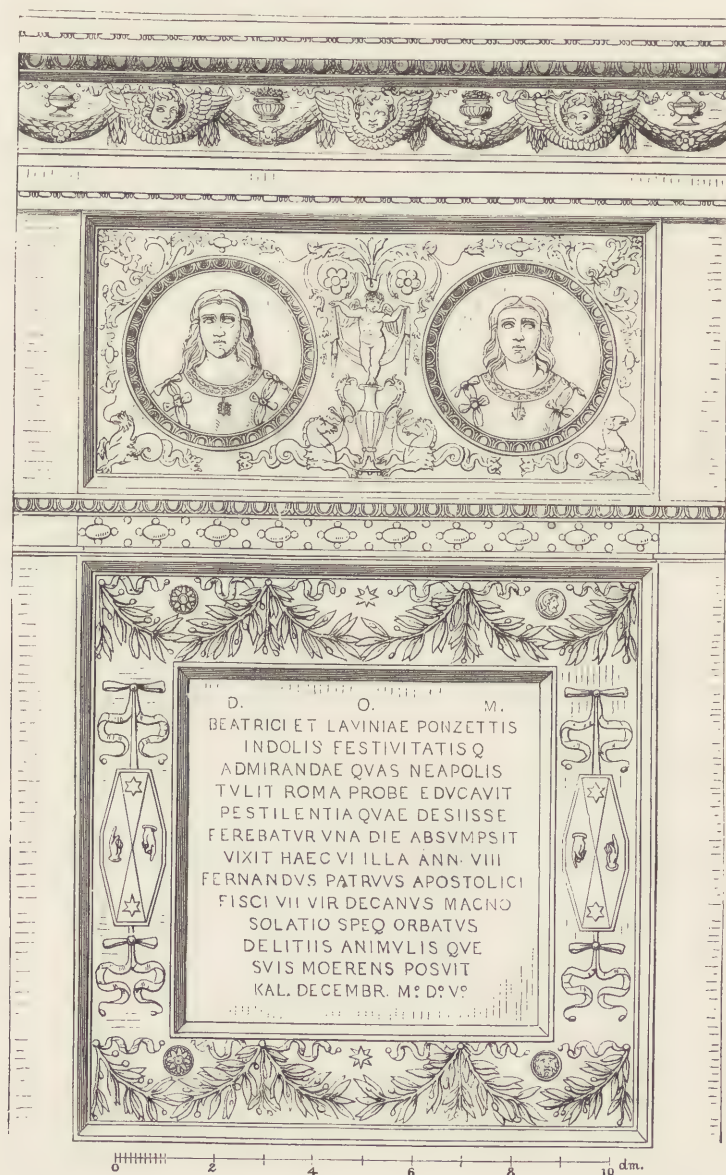 D. O. M.
BEATRICI ET LAVINIAE PONZETTIS
INDOLIS FESTIVITATISQ
ADMIRANDAE QVAS NEAPOLIS
TVLIT ROMA PROBE EDVCAVIT
PESTILENTIA QVAE DESIISSE
FEREBATVR VNA DIE ABSVMPSIT
VIXIT HAEC VI ILLA ANN. VIII
FERNANDVS PATRVVS APOSTOLICI
FISCI VII VIR DECANVS MAGNO
SOLATIO SPEQ ORBATVS
DELITIIS ANIMVLIS QVE
SVIS MOERENS POSVIT
KAL. DECEMBR. Mº. Dº. Vº.
0 2 4 6 8 10 dm.